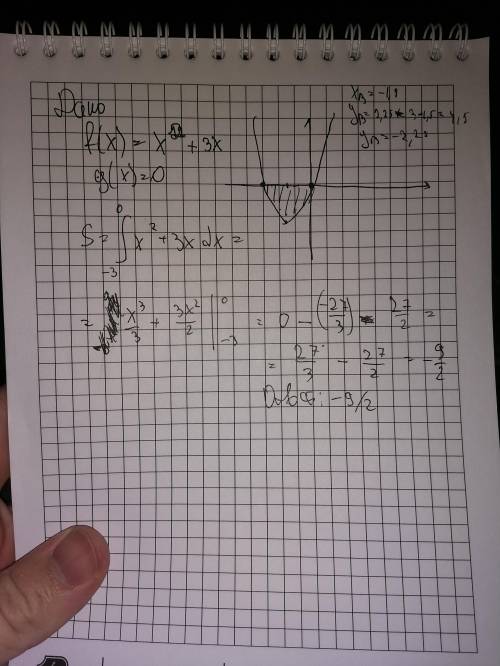 Дано
f(x) = x² + 3x
g(x) = 0
x_B = -1,5
y_B = 2,25 3·1,5 = 4,5
y_B = -2,25
S = ∫_{-3}^{0} x² + 3x dx =
= x³/3 + 3x²/2 |_{-3}^{0} = 0 - (-27/3) - 27/2 =
= 27/3 - 27/2 = -9/2
-9/2